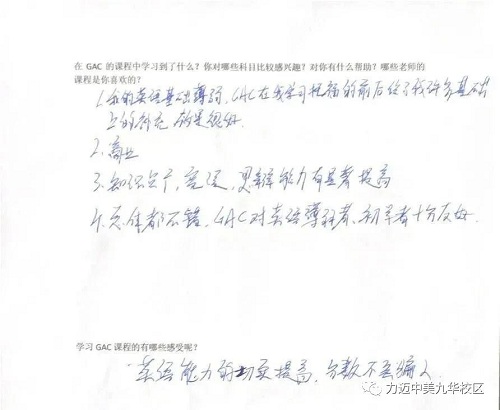 在 GAC 的课程中学习到了什么？你对哪些科目比较感兴趣？对你有什么帮助？哪些老师的
课程是你喜欢的？
1.我的英语基础薄弱，GAC在我学习托福的前后给了我许多基础
上的补充
2.商业
3.知识 思维能力有显著提高
4.总体都不错，GAC对英语薄弱者、初学者十分友好.
学习 GAC 课程的有哪些感受呢？
英语能力的 提高，分数不会骗人
力迈中美九华校区